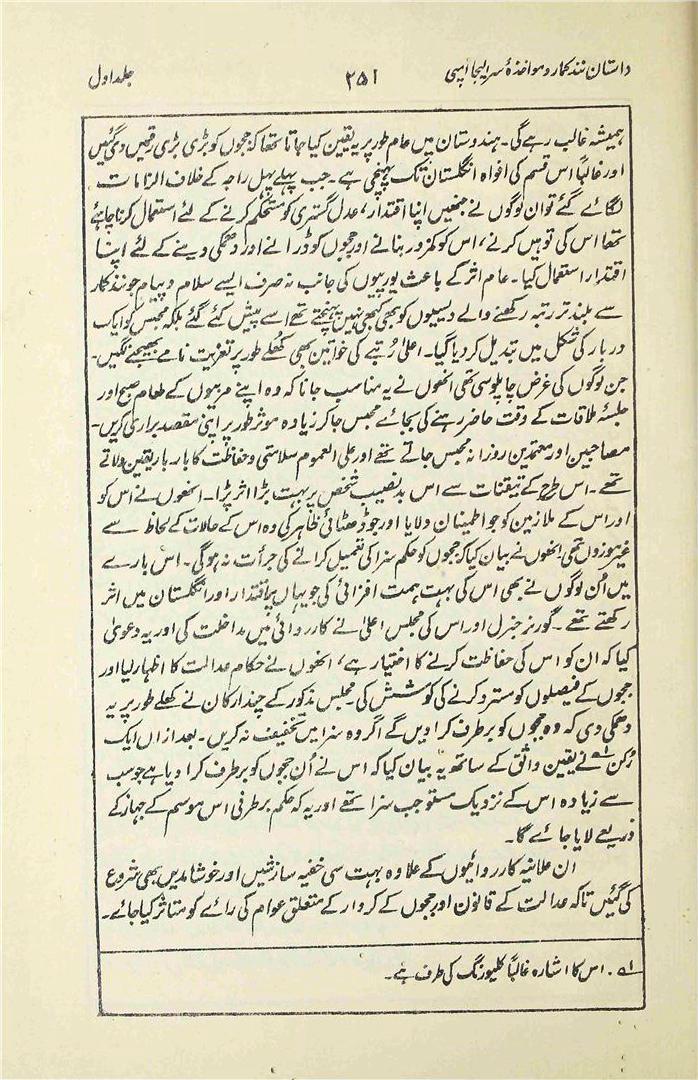 داستان نند کمار و مواخذۂ سر ایلیجا اِمپی
۲۵۱
جلد اول
ہمیشہ غالب رہے گی۔ ہندوستان میں عام طور پر یہ یقین کیا جاتا تھا کہ ججوں کو بڑی بڑی رقمیں دی گئیں
اور غالباً اس قسم کی افواہ انگلستان تک پہنچی ہے۔ جب پہلے پہل راجہ کے خلاف الزامات
لگائے گئے تو ان لوگوں نے جنھیں اپنا اقتدار، عدل گستری کو مستحکم کرنے کے لئے استعمال کرنا چاہئے
تھا اس کی توہین کرنے، اس کو کمزور بنانے اور ججوں کو ڈرانے اور دھمکی دینے کے لئے اپنا
اقتدار استعمال کیا۔ عام اثر کے باعث یورپیوں کی جانب نہ صرف ایسے سلام و پیام جو نند کمار
سے بلند تر رتبہ رکھنے والے دیسیوں کو بھی کبھی نہیں پہنچتے تھے اسے پیش کئے گئے بلکہ محبس کو ایک
دربار کی شکل میں تبدیل کر دیا گیا۔ اعلیٰ رُتبے کی خواتین بھی کھلے طور پر تعزیت نامے بھیجنے لگیں۔
جن لوگوں کی غرض چاپلوسی تھی انھوں نے یہ مناسب جانا کہ وہ اپنے مربیوں کے طعام صبح اور
جلسۂ ملاقات کے وقت حاضر رہنے کی بجائے محبس جا کر زیادہ موثر طور پر اپنی مقصد براری کریں۔
مصاحبین اور معتمدین روزانہ محبس جاتے تھے اور علی العموم سلامتی و حفاظت کا بار بار یقین دلاتے
تھے۔ اس طرح کے تیقنات سے اس بدنصیب شخص پر بہت بڑا اثر پڑا۔ انھوں نے اس کو
اور اس کے ملازمین کو جو اطمینان دلایا اور جو ڈھٹائی ظاہر کی وہ اس کے حالات کے لحاظ سے
غیر موزوں تھی انھوں نے بیان کیا کہ ججوں کو حکم سزا کی تعمیل کرانے کی جرأت نہ ہوگی۔ اس بارے
میں اُن لوگوں نے بھی اس کی بہت ہمت افزائی کی جو یہاں پر اقتدار اور انگلستان میں اثر
رکھتے تھے۔ گورنر جنرل اور اس کی مجلس اعلیٰ نے کارروائی میں مداخلت کی اور یہ دعویٰ
کیا کہ ان کو اس کی حفاظت کرنے کا اختیار ہے، انھوں نے حکام عدالت کا اظہار لیا اور
ججوں کے فیصلوں کو مسترد کرنے کی کوشش کی۔ مجلس مذکور کے چند ارکان نے کھلے طور پر یہ
دھمکی دی کہ وہ ججوں کو برطرف کرا دیں گے اگر وہ سزا میں تخفیف نہ کریں۔ بعد ازاں ایک
رُکن ؎۱ نے یقین واثق کے ساتھ یہ بیان کیا کہ اس نے اُن ججوں کو برطرف کرا دیا ہے جو سب
سے زیادہ اس کے نزدیک مستوجب سزا تھے اور یہ کہ حکم برطرفی اس موسم کے جہاز کے
ذریعے لایا جائے گا۔
ان علانیہ کارروائیوں کے علاوہ بہت سی خفیہ سازشیں اور خوشامدیں بھی شروع
کی گئیں تاکہ عدالت کے قانون اور ججوں کے کردار کے متعلق عوام کی رائے کو متاثر کیا جائے۔
؎۱۔ اس کا اشارہ غالباً کلیورنگ کی طرف ہے۔